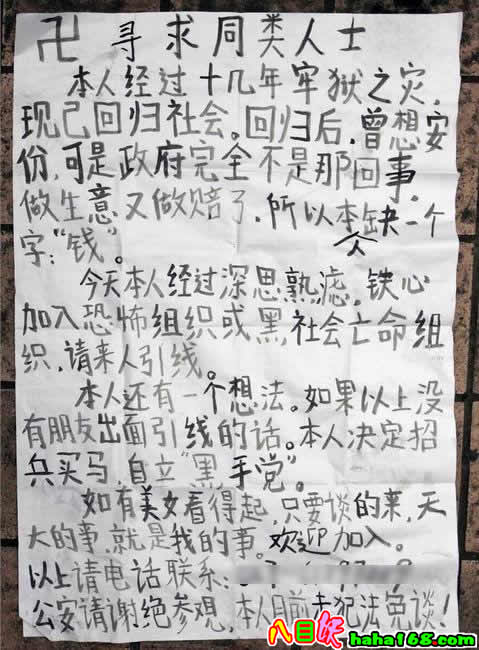 卍 寻求同类人士
本人经过十几年牢狱之灾,
现已回归社会。回归后,曾想安
份,可是政府完全不是那回事。
做生意又做赔了,所以本人缺一个
字:“钱”。
今天本人经过深思熟虑,铁心
加入恐怖组织或黑社会亡命组
织,请来人引线。
本人还有一个想法。如果以上没
有朋友出面引线的话。本人决定招
兵买马,自立“黑手党”。
如有美女看得起,只要谈的来,天
大的事,就是我的事。欢迎加入。
以上请电话联系:
公安请谢绝参观,本人目前未犯法免谈!
八目妖
haha168.com